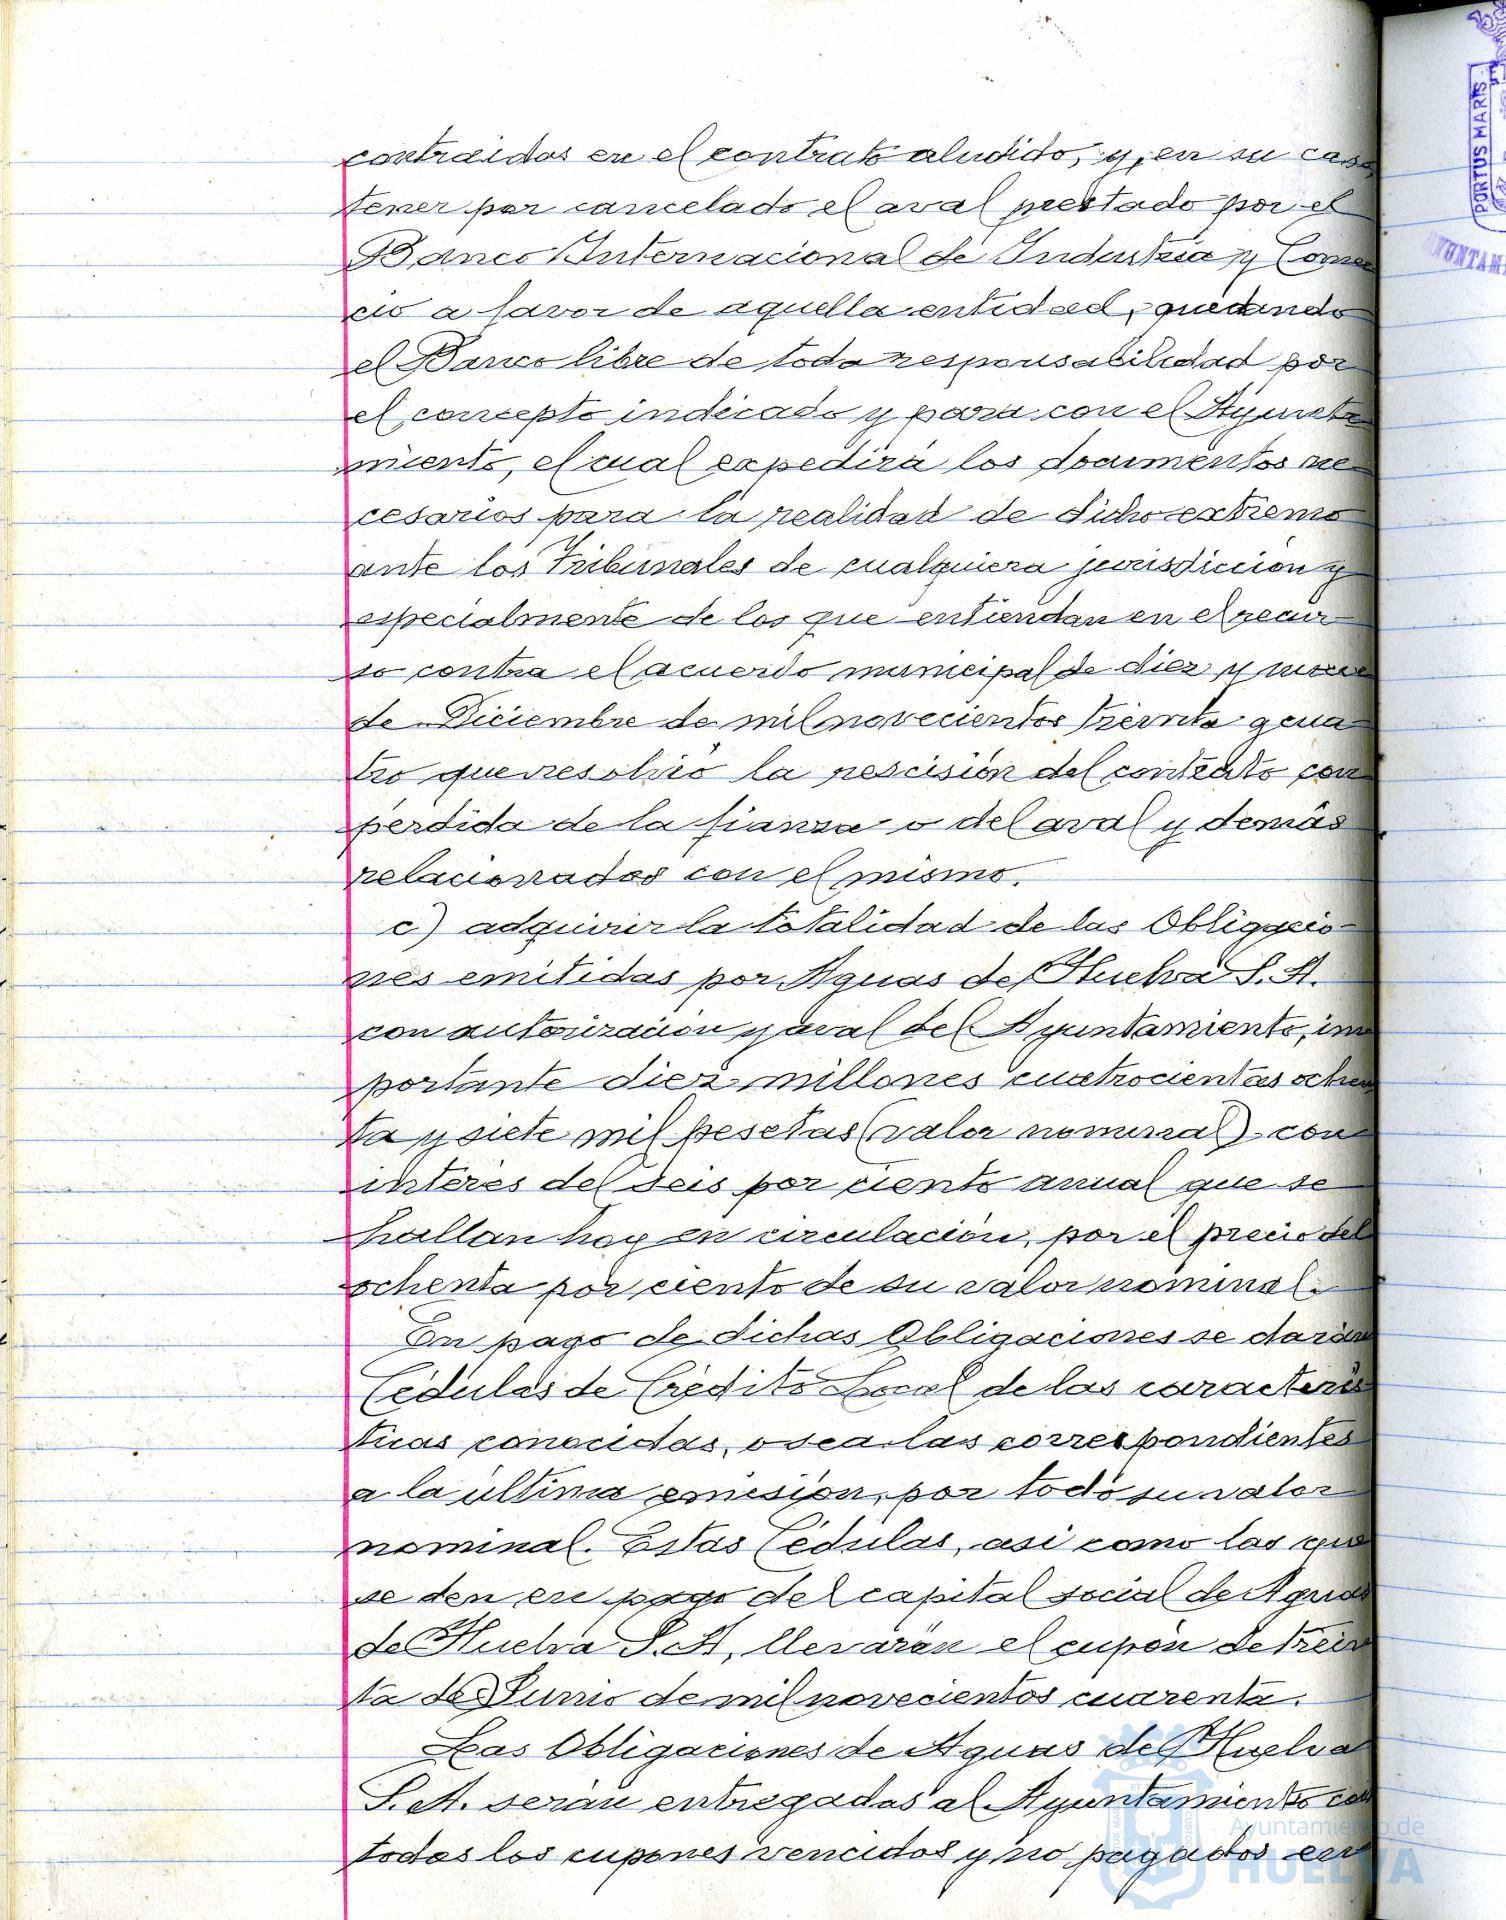 contraidos en el contrato aludido, y, en su caso,
tener por cancelado el aval prestado por el
Banco Internacional de Industria y Comer
cio a favor de aquella entidad, quedando
el Banco libre de toda responsabilidad por
el concepto indicado y para con el Ayunta
miento, el cual expedirá los documentos ne
cesarios para la realidad de dicho extremo
ante los Tribunales de cualquiera jurisdicción y
especialmente de los que entiendan en el recur
so contra el acuerdo municipal de diez y nueve
de Diciembre de mil novecientos treinta y cua
tro que resolvió la rescisión del contrato con
pérdida de la fianza o del aval y demás
relacionados con el mismo.
c) adquirir la totalidad de las Obligacio
nes emitidas por Aguas de Huelva S. A.
con autorización y aval del Ayuntamiento, im
portante diez millones cuatrocientas ochen
ta y siete mil pesetas (valor nominal) con
interés del seis por ciento anual que se
hallan hoy en circulación, por el precio del
ochenta por ciento de su valor nominal.
En pago de dichas Obligaciones se darán
Cédulas de Crédito Local de las caracterís
ticas conocidas, o sea las correspondientes
a la última emisión, por todo su valor
nominal. Estas Cédulas, asi como las que
se den en pago del capital social de Aguas
de Huelva S. A, llevarán el cupón de trein
ta de Junio de mil novecientos cuarenta.
Las Obligaciones de Aguas de Huelva
S. A. serán entregadas al Ayuntamiento con
todos los cupones vencidos y no pagados en
PORTUS MARIS
Ayuntamiento de
HUELVA